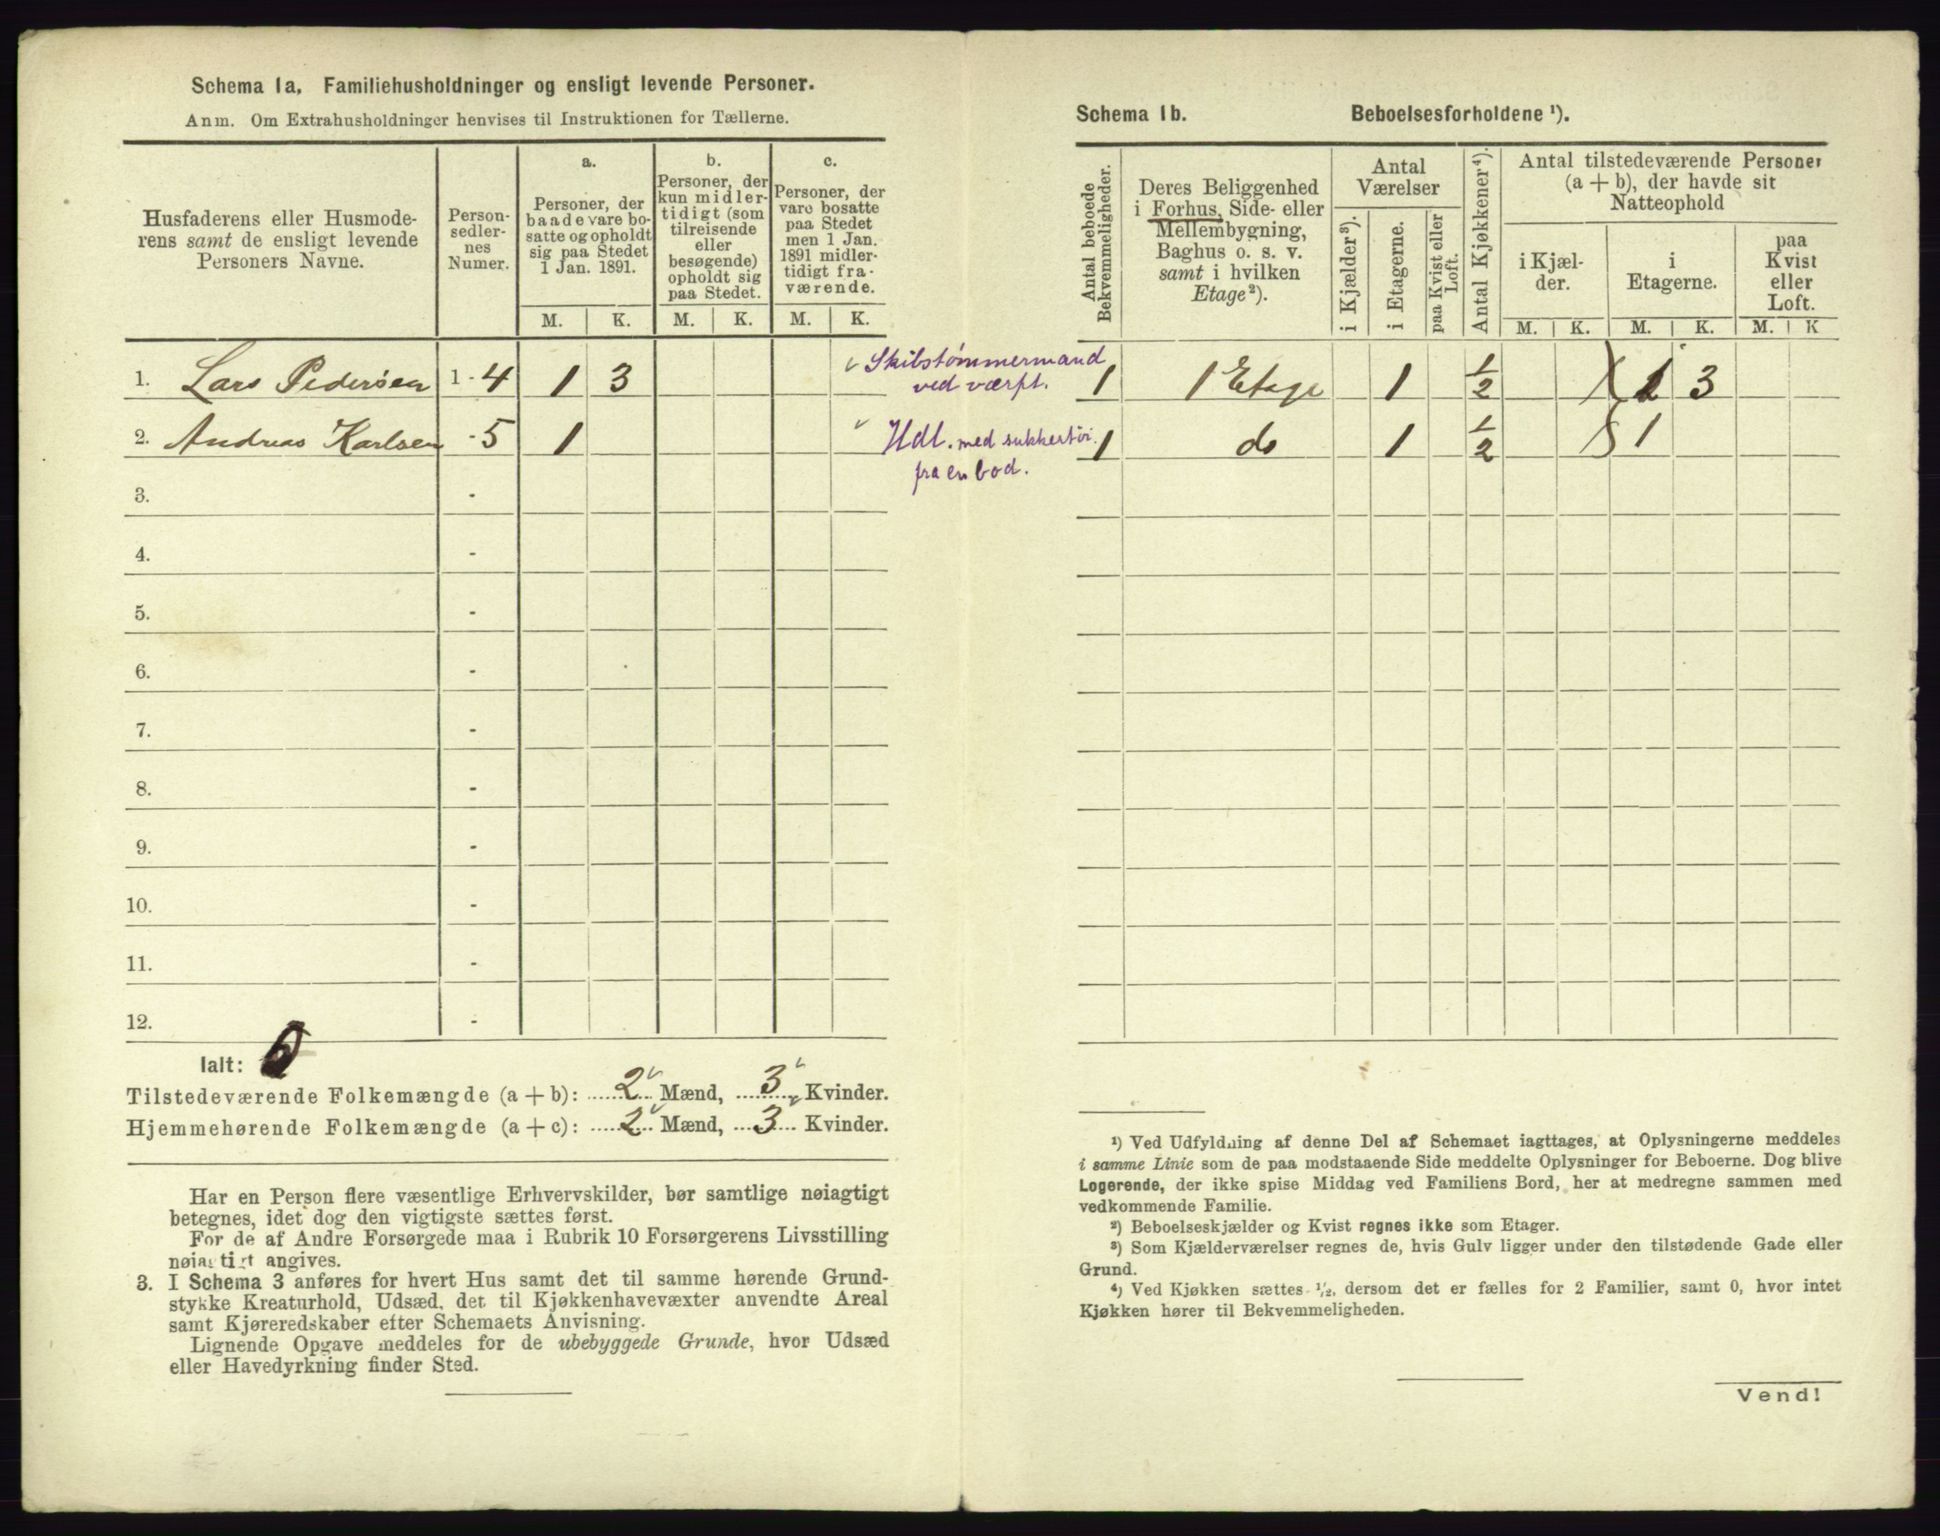 Schema 1a. Familiehusholdninger og ensligt levende Personer.
Anm. Om Extrahusholdninger henvises til Instruktionen for Tællerne.
Husfaderens eller Husmode-
rens samt de ensligt levende
Personers Navne.
Person-
sedler-
nes
Numer.
a.
Personer, der
baade vare bo-
satte og opholdt
sig paa Stedet
1 Jan. 1891.
b.
Personer, der
kun midler-
tidigt (som
tilreisende
eller
besøgende)
opholdt sig
paa Stedet.
c.
Personer, der
vare bosatte
paa Stedet
men 1 Jan.
1891 midler-
tidigt fra-
værende.
M. K. M. K. M. K.
1. Lars Pedersen 1 - 4 1 3
2. Andreas Karlsen - 5 1
3. -
4. -
5. -
6. -
7. -
8. -
9. -
10. -
11. -
12. -
Ialt:
Tilstedeværende Folkemængde (a + b): 2 Mænd, 3 Kvinder.
Hjemmehørende Folkemængde (a + c): 2 Mænd, 3 Kvinder.
Har en Person flere væsentlige Erhvervskilder, bør samtlige nøiagtigt
betegnes, idet dog den vigtigste sættes først.
For de af Andre Forsørgede maa i Rubrik 10 Forsørgerens Livsstilling
nøiagtigt angives.
3. I Schema 3 anføres for hvert Hus samt det til samme hørende Grund-
stykke Kreaturhold, Udsæd, det til Kjøkkenhavevæxter anvendte Areal
samt Kjøreredskaber efter Schemaets Anvisning.
Lignende Opgave meddeles for de ubebyggede Grunde, hvor Udsæd
eller Havedyrkning finder Sted.
Skibstømmermand
ved værft.
Hdl. med sukkertøi
fra en bod.
Schema 1b. Beboelsesforholdene ¹).
Antal beboede
Bekvemmeligheder.
Deres Beliggenhed
i Forhus, Side- eller
Mellembygning,
Baghus o. s. v.
samt i hvilken
Etage²).
Antal
Værelser
i Kjælder³).
i Etagerne.
paa Kvist eller
Loft.
Antal Kjøkkener⁴).
Antal tilstedeværende Personer
(a + b), der havde sit
Natteophold
i Kjæl-
der.
i
Etagerne.
paa
Kvist
eller
Loft.
M. K. M. K. M. K
1 1 Etage 1 1/2 1 3
1 do 1 1/2 1
¹) Ved Udfyldning af denne Del af Schemaet iagttages, at Oplysningerne meddeles
i samme Linie som de paa modstaaende Side meddelte Oplysninger for Beboerne. Dog blive
Logerende, der ikke spise Middag ved Familiens Bord, her at medregne sammen med
vedkommende Familie.
²) Beboelseskjælder og Kvist regnes ikke som Etager.
³) Som Kjælderværelser regnes de, hvis Gulv ligger under den tilstødende Gade eller
Grund.
⁴) Ved Kjøkken sættes ¹/₂, dersom det er fælles for 2 Familier, samt 0, hvor intet
Kjøkken hører til Bekvemmeligheden.
Vend!